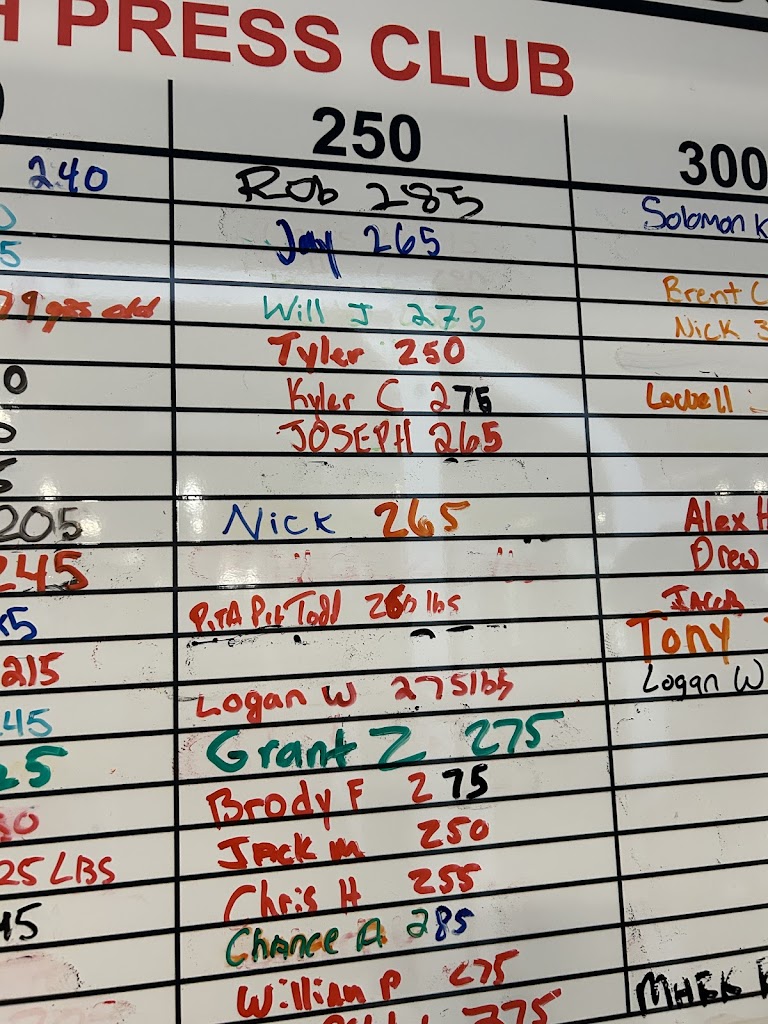 PRESS CLUB
250
300
240
Rob 285
Solomon K
Jay 265
5
Brent C
79 yrs old
Will J 275
Nick 3
Tyler 250
0
Kyler C 275
JOSEPH 265
205
Nick 265
Alex H
245
Drew
PITA Pit Todd 260 lbs
JACOB
Tony
215
Logan W 275 lbs
Logan W
45
Grant Z 275
25
Brody F 275
Jack M 250
25 LBS
Chris H 255
45
Chance A 285
William P 275
275